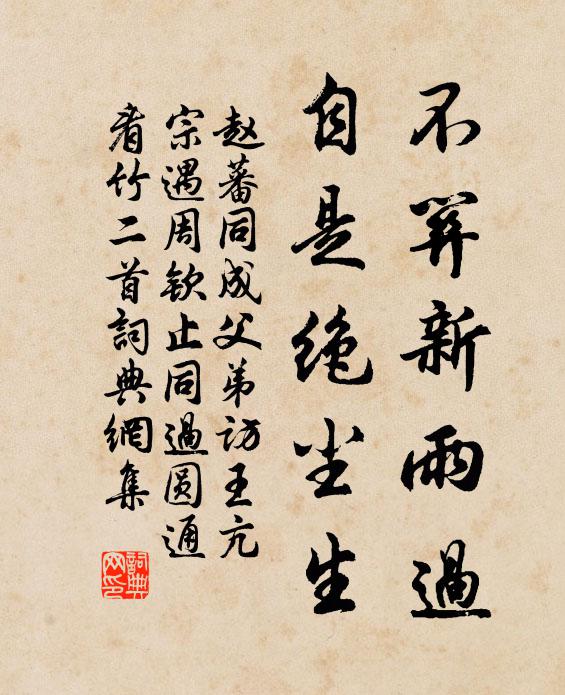 不算新雨過
自是绝尘生
赵蕃同成父弟访王亢
宗遇周钦止同過圆通
看竹二首詞典網集
詞典
网印